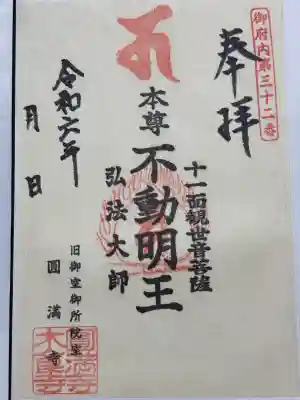 御府内第三十二番
奉拝
十一面観世音菩薩
本尊 不動明王
弘法大師
旧御室御所院室
圓満寺
令和六年
月 日